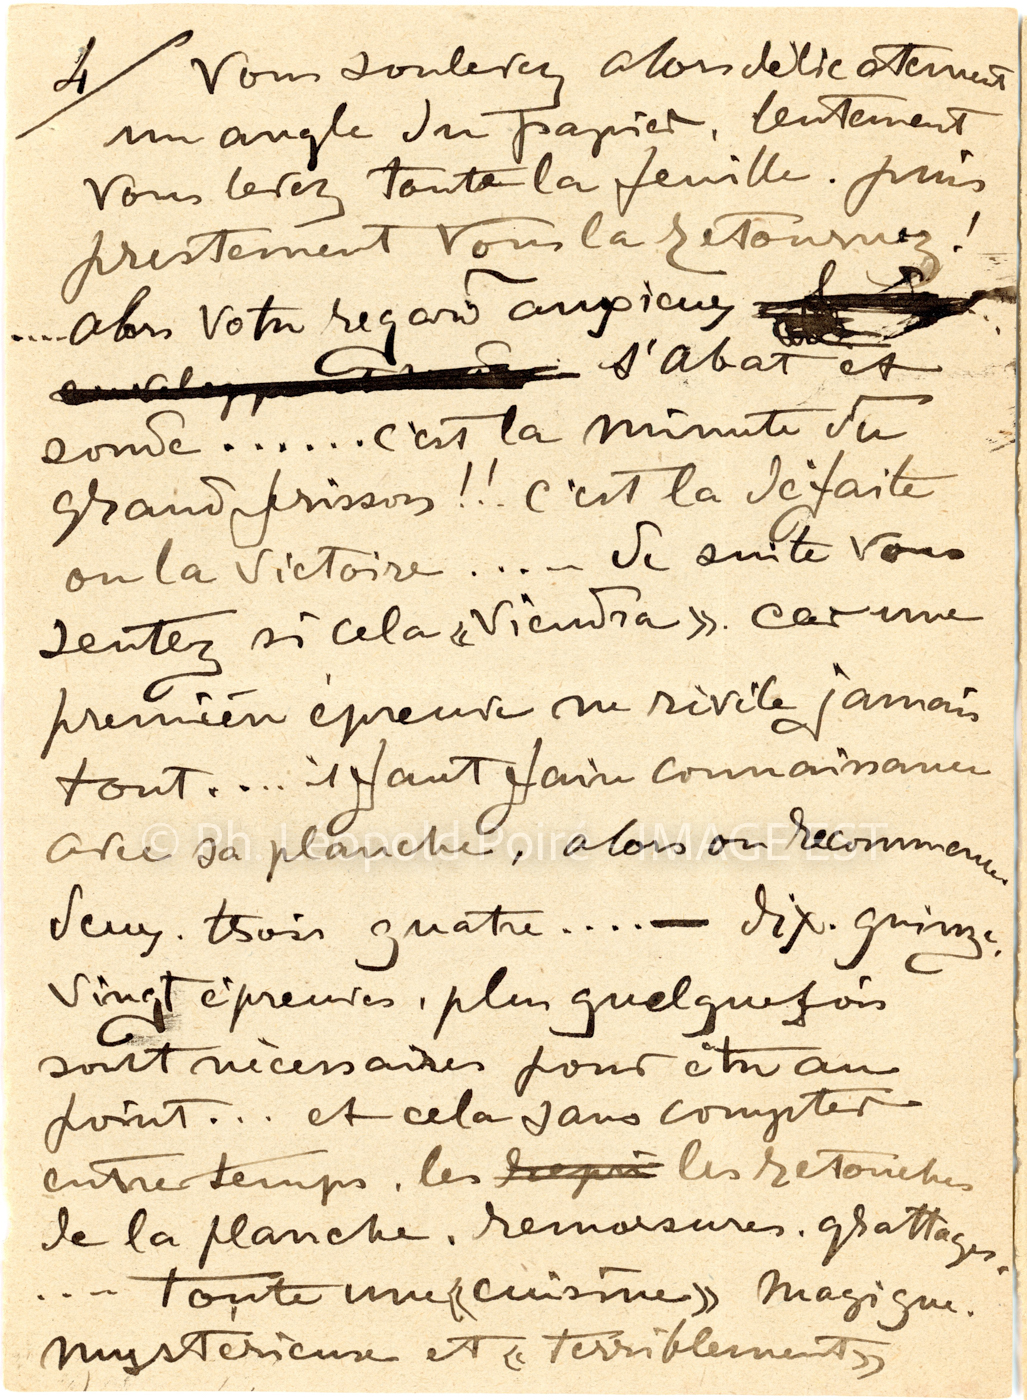 4/ Vous soulevez alors délicatement
un angle du papier, lentement
vous levez toute la feuille. puis
prestement vous la retournez !
....alors votre regard anxieux
s'abat et
sonde ......c'est la minute du
grand frisson !!. c'est la défaite
ou la victoire ..... de suite vous
sentez si cela «viendra». car une
première épreuve ne révèle jamais
tout.... il faut faire connaissance
avec sa planche, alors on recommence
deux. trois quatre ....— dix. quinze.
vingt épreuves, plus quelquefois
sont nécessaires pour être au
point... et cela sans compter
entre temps, les les retouches
de la planche. remorsures. grattages.
.... toute une «cuisine» magique.
mystérieuse et «terriblement»
© Ph. Léopold Poiré / IMAGE'EST